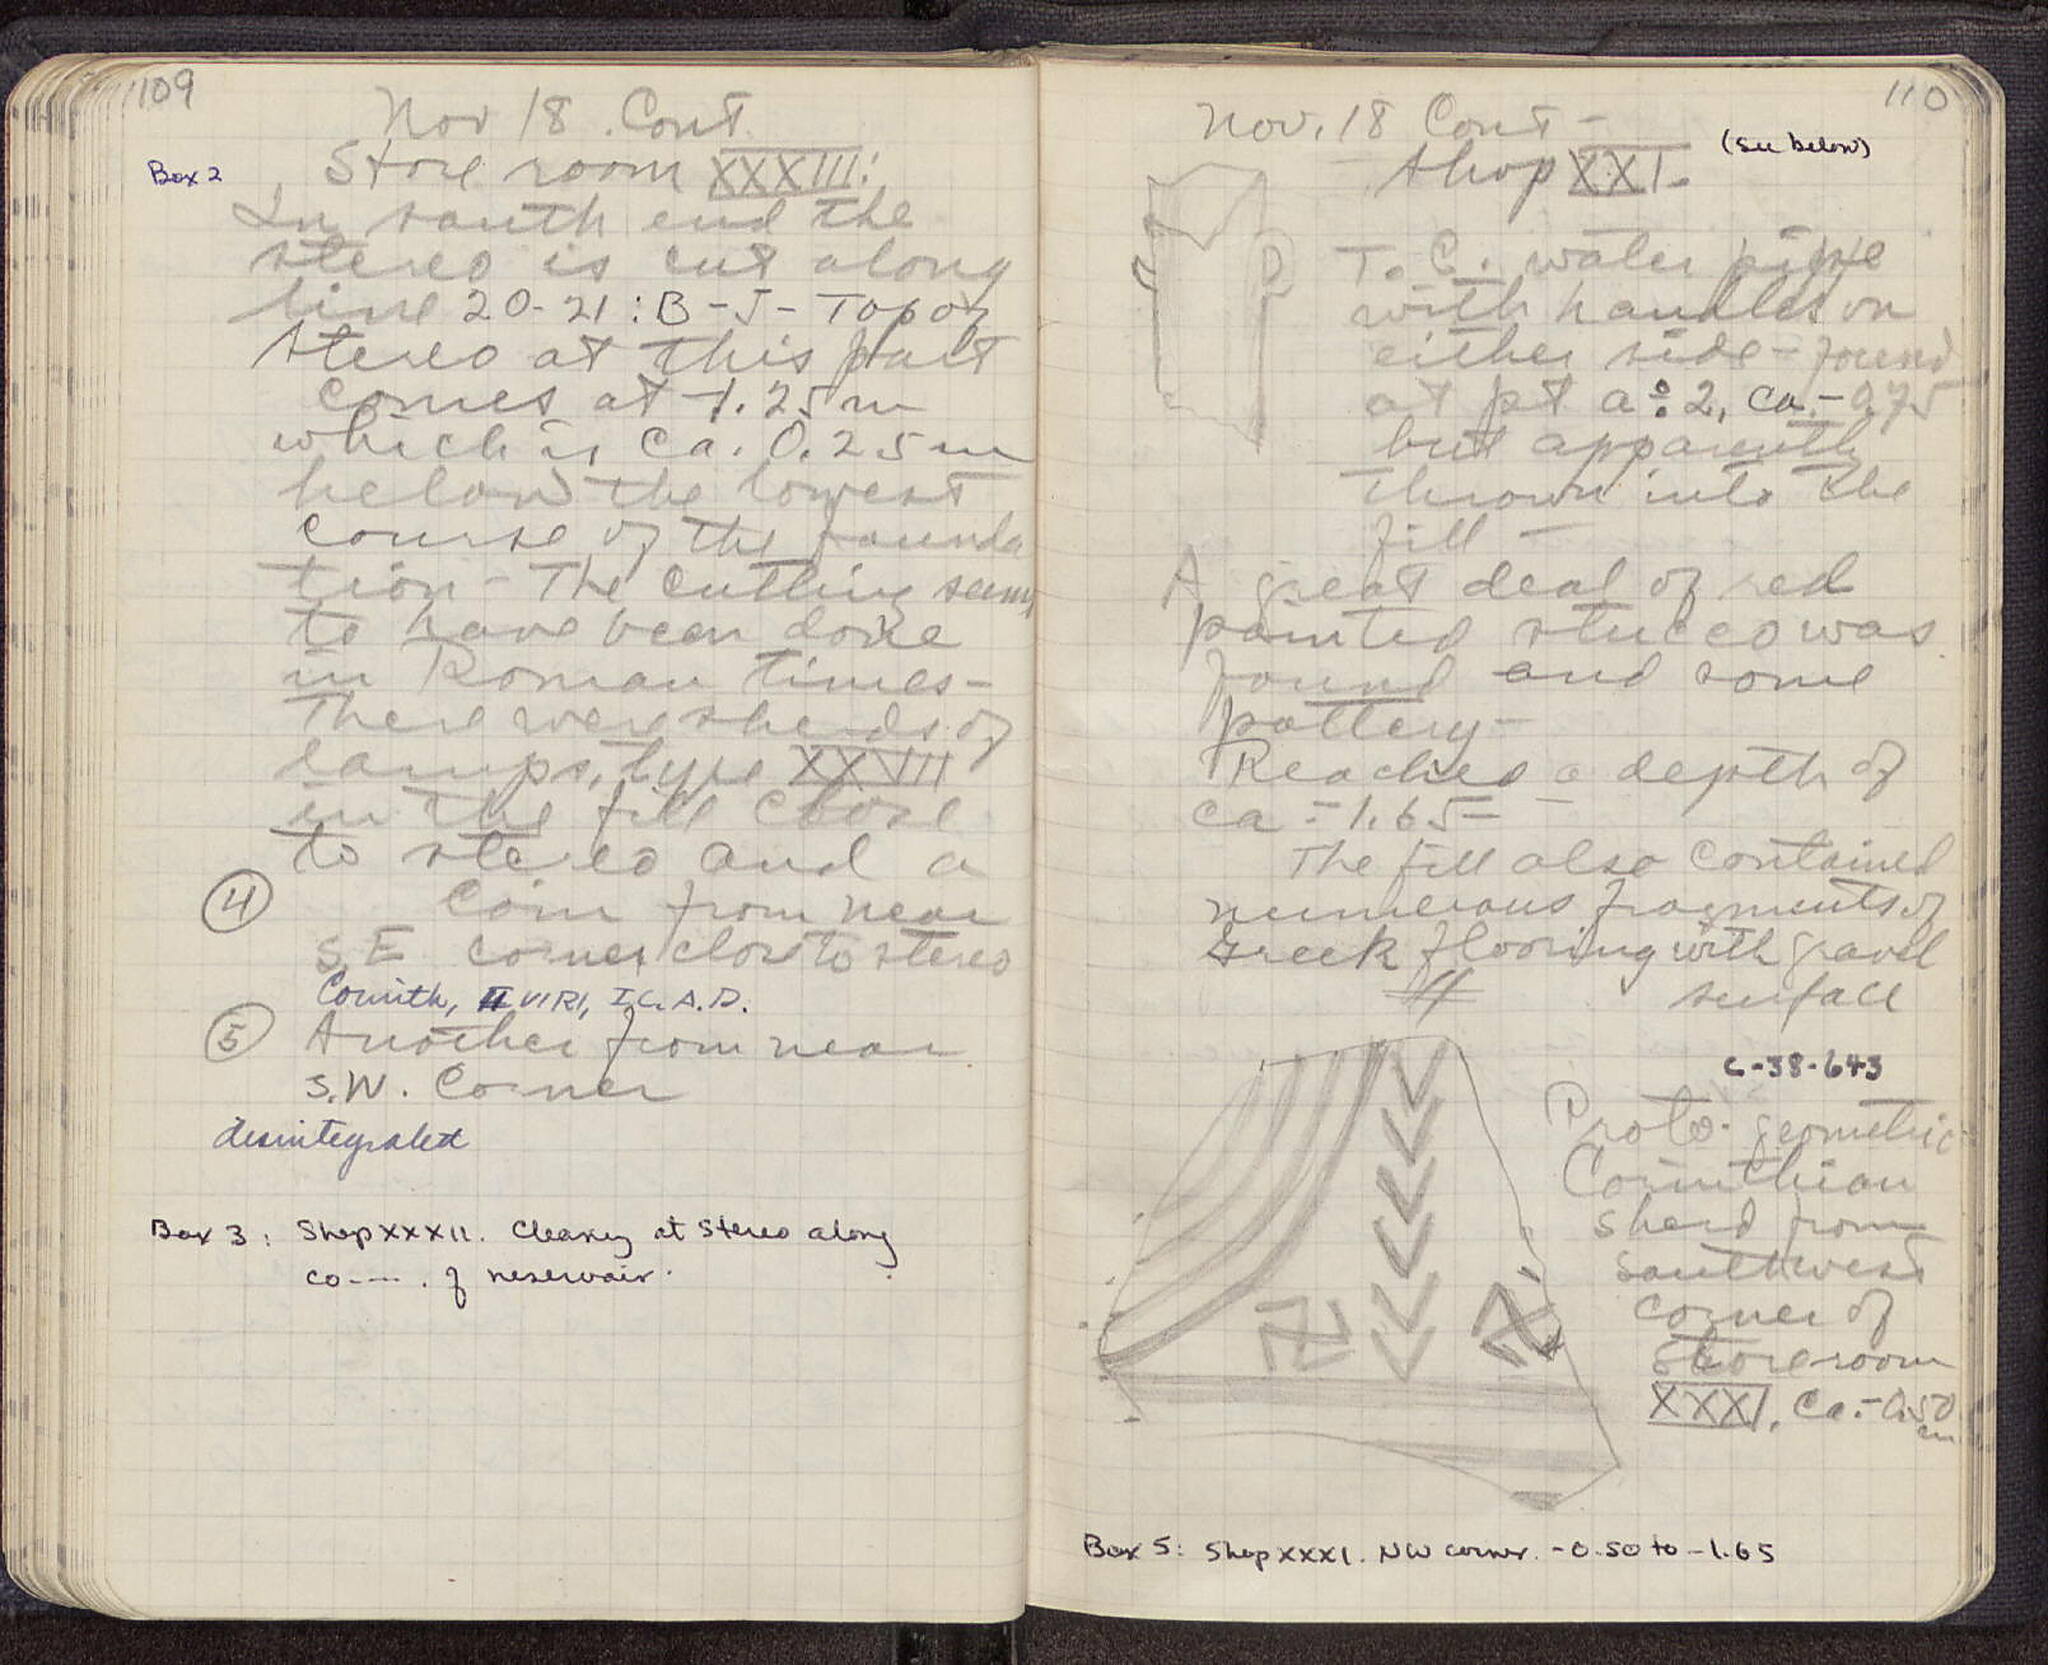 109
Nov 18. Cont.
Box 2
Store room XXXIII:
In south end the
stereo is cut along
line 20-21: B-J- Top of
stereo at this part
comes at -1.25 m
which is ca. 0.25 m
below the lowest
course of the founda
tion - The cutting seems
to have been done
in Roman times-
There were sherds of
lamps, type XXVII
in the fill close
to stereo and a
④ Coin from near
S.E corner close to stereo
Corinth, II VIRI, I C. A.D.
⑤ Another from near
S.W. Corner
disintegrated
Box 3: Shop XXXII. at Stereo along
of reservoir.
110
Nov. 18 Cont -
Shop XXXI. (See below)
T.C. water pipe
with handles on
either side - found
at pt a:2, ca. -0.75
but apparently
thrown into the
fill -
A great deal of red
painted stucco was
found and some
pottery -
Reached a depth of
ca - 1.65 -
The fill also contained
numerous fragments of
Greek flooring with gravel
surface
C-38-643
Proto-geometric
Corinthian
sherd from
southwest
corner of
Storeroom
XXXI, Ca. -0.50
m
Box 5: Shop XXXI. NW corner. -0.50 to -1.65